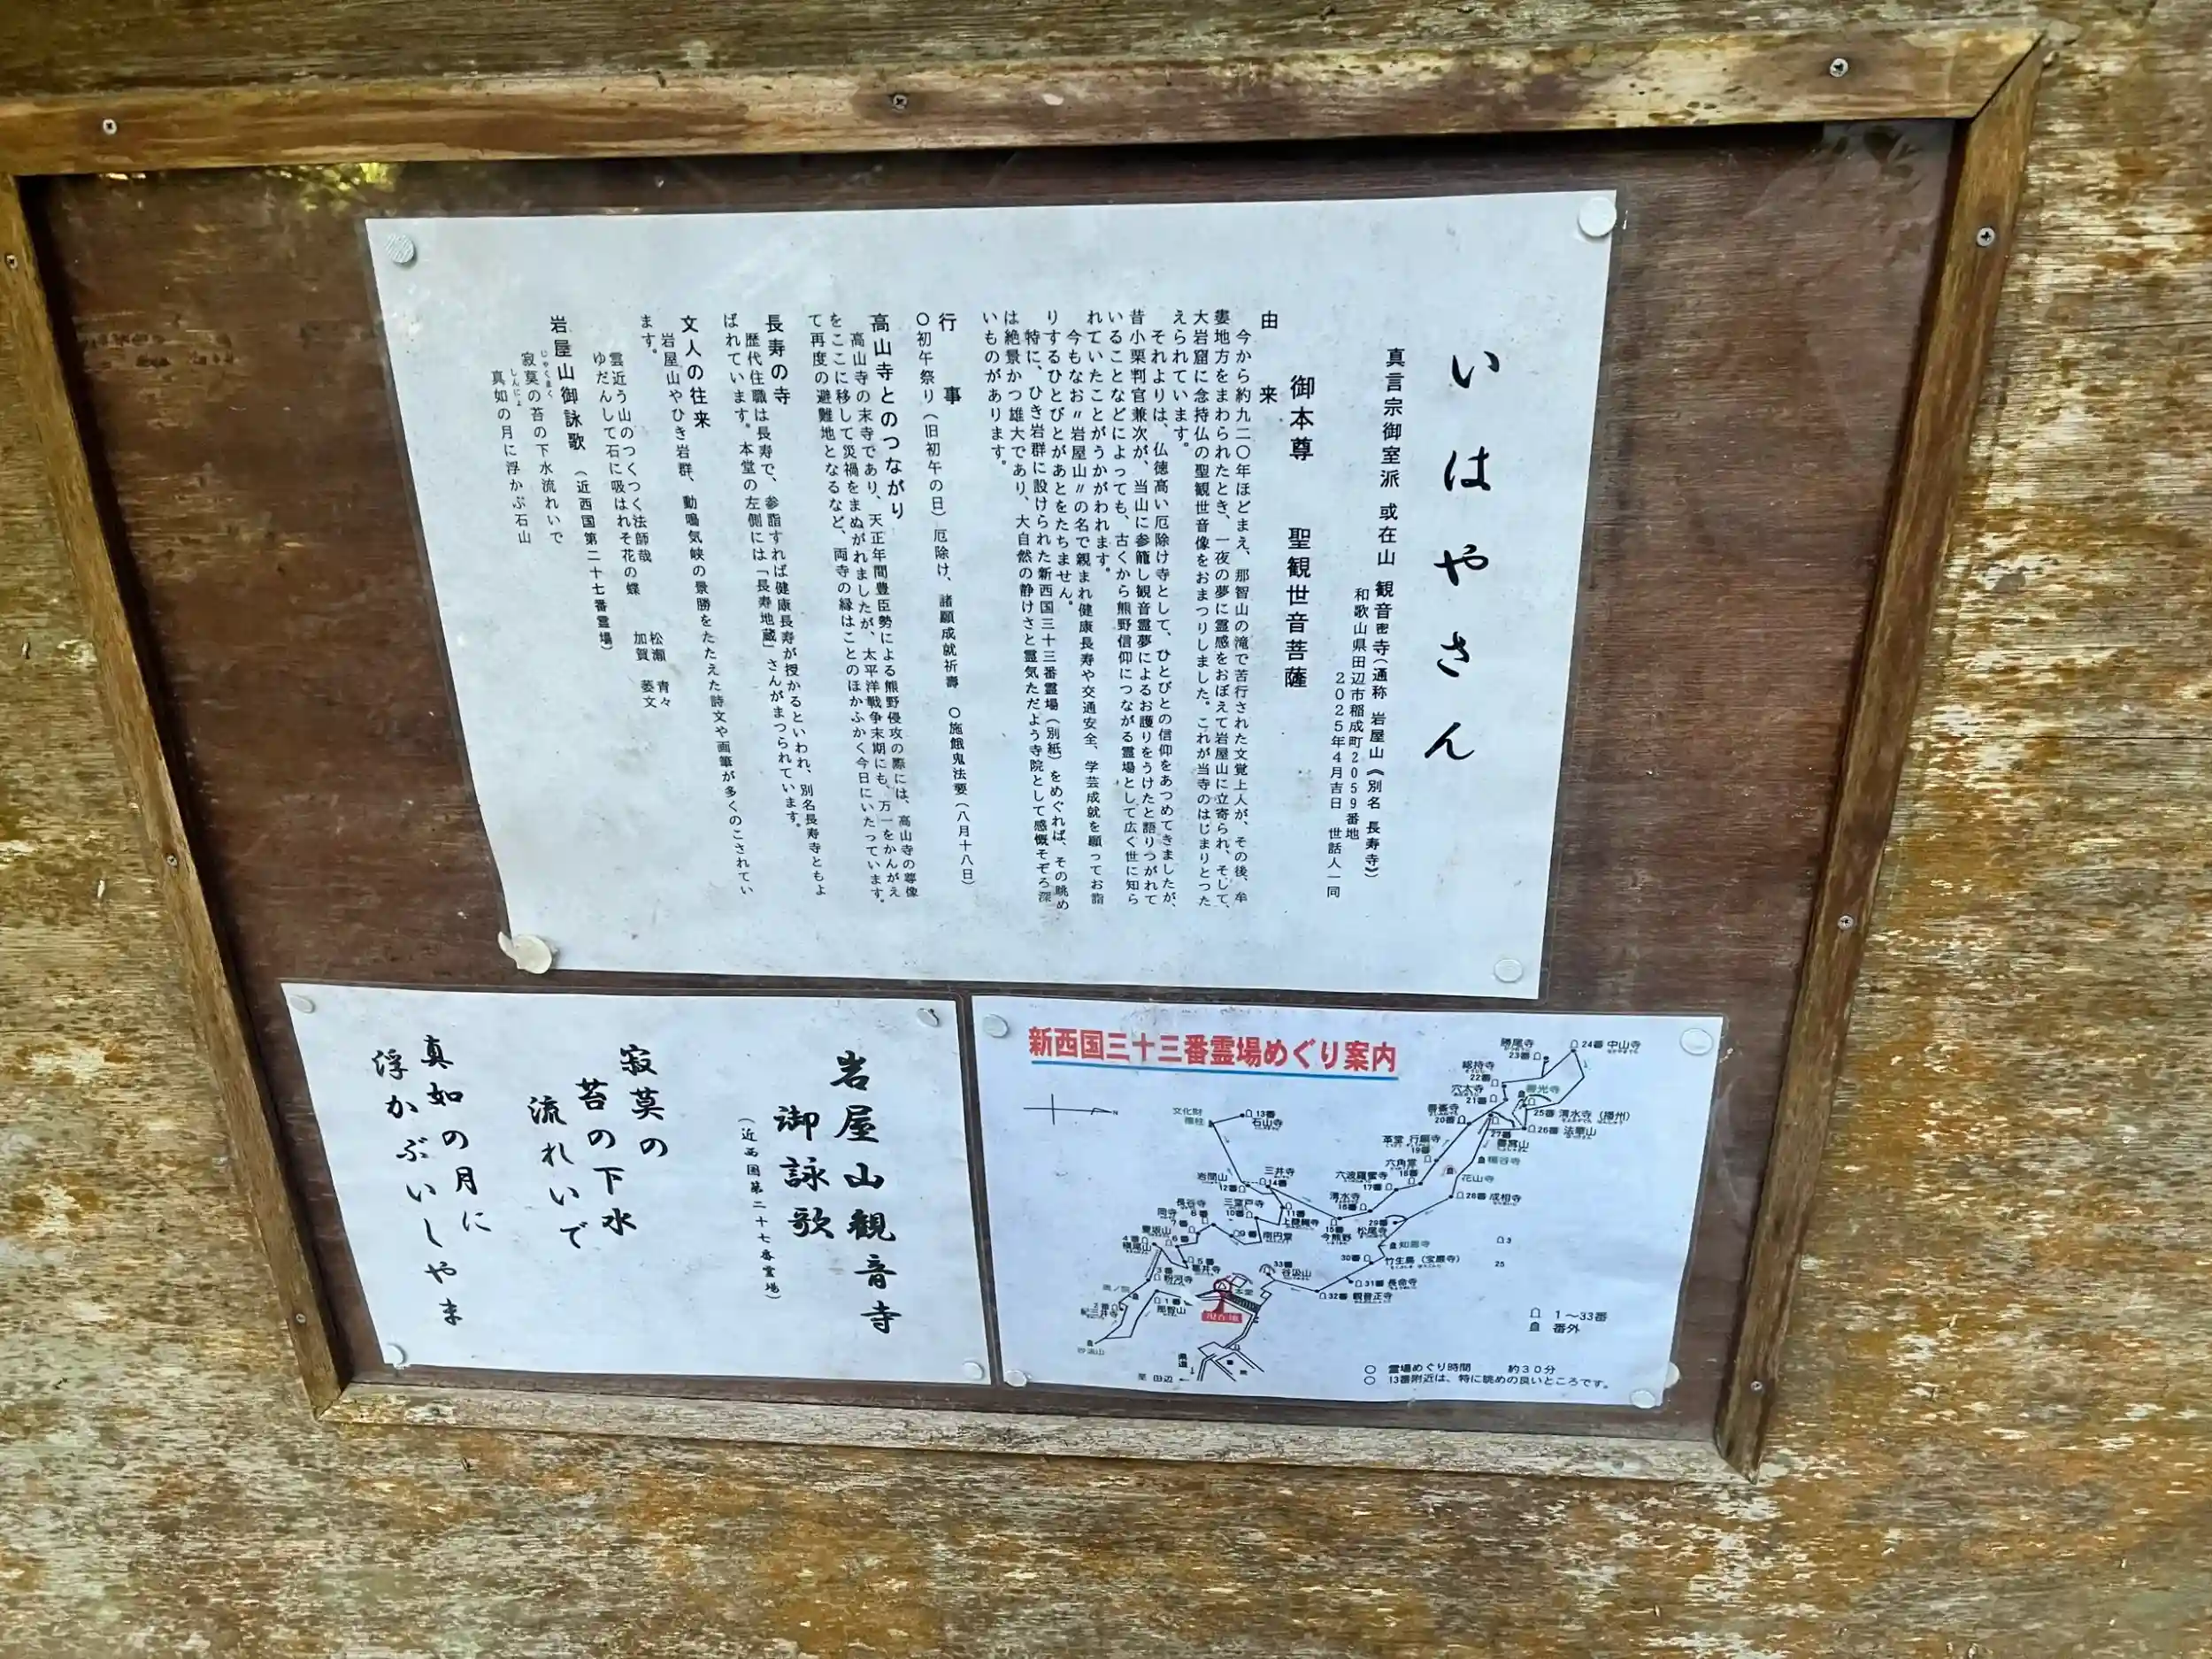 いはやさん
真言宗御室派 或在山 観音密寺(通称 岩屋山《別名 長寿寺》)
和歌山県田辺市稲成町2059番地
2025年4月吉日 世話人一同
御本尊 聖観世音菩薩
由来
今から約九二〇年ほどまえ、那智山の滝で苦行された文覚上人が、その後、牟
婁地方をまわられたとき、一夜の夢に霊感をおぼえて岩屋山に立寄られ、そして、
大岩窟に念持仏の聖観世音像をおまつりしました。これが当寺のはじまりとつた
えられています。
それよりは、仏徳高い厄除け寺として、ひとびとの信仰をあつめてきましたが、
昔小栗判官兼次が、当山に参籠し観音霊夢によるお護りをうけたと語りつがれて
いることなどによっても、古くから熊野信仰につながる霊場として広く世に知ら
れていたことがうかがわれます。
今もなお〃岩屋山〃の名で親まれ健康長寿や交通安全、学芸成就を願ってお詣
りするひとびとがあとをたちません。
特に、ひき岩群に設けられた新西国三十三番霊場(別紙)をめぐれば、その眺め
は絶景かつ雄大であり、大自然の静けさと霊気ただよう寺院として感慨そぞろ深
いものがあります。
行事
〇初午祭り(旧初午の日)厄除け、諸願成就祈壽 〇施餓鬼法要(八月十八日)
高山寺とのつながり
高山寺の末寺であり、天正年間豊臣勢による熊野侵攻の際には、高山寺の尊像
をここに移して災禍をまぬがれましたが、太平洋戦争末期にも、万一をかんがえ
て再度の避難地となるなど、両寺の縁はことのほかふかく今日にいたっています。
長寿の寺
歴代住職は長寿で、参詣すれば健康長寿が授かるといわれ、別名長寿寺ともよ
ばれています。本堂の左側には「長寿地蔵」さんがまつられています。
文人の往来
岩屋山やひき岩群、動鳴気峡の景勝をたたえた詩文や画筆が多くのこされてい
ます。
雲近う山のつくつく法師哉 松瀬 青々
ゆだんして石に吸はれそ花の蝶 加賀 萎文
岩屋山御詠歌 (近西国第二十七番霊場)
じゃくまく
寂莫の苔の下水流れいで
しんにょ
真如の月に浮かぶ石山
岩屋山観音寺
御詠歌
(近西国第二十七番霊場)
寂莫の
苔の下水
流れいで
真如の月に
浮かぶいしやま
新西国三十三番霊場めぐり案内
N
文化財
13番
石山寺
岩間山
12番
三井寺
14番
長谷寺
8番
三室戸寺
10番
11番
上醍醐寺
岡寺
7番
6番
9番
南円堂
4番
槇尾山
5番
葛井寺
3番
粉河寺
2番
紀三井寺
1番
那智山
本堂
現在地
33番
谷汲山
32番 観音正寺
31番 長命寺
30番
竹生島(宝厳寺)
29番
松尾寺
28番 成相寺
花山寺
27番
26番 法華山
25番 清水寺(播州)
24番 中山寺
勝尾寺
23番
総持寺
22番
穴太寺
21番
善峯寺
20番
革堂 行願寺
19番
六角堂
18番
六波羅蜜寺
17番
清水寺
16番
15番
今熊野
県道
至 田辺
3
25
1〜33番
番外
〇 霊場めぐり時間 約30分
〇 13番附近は、特に眺めの良いところです。